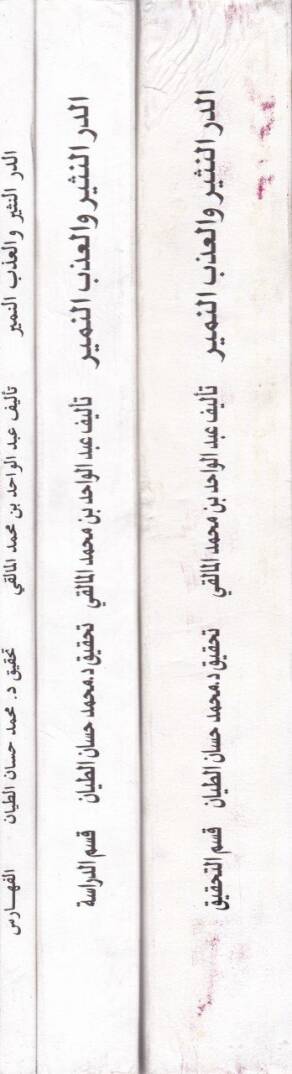 الدر النثير والعذب النمير تأليف عبد الواحد بن محمد المالقي تحقيق د.محمد حسان الطيان قسم التحقيق
الدر النثير والعذب النمير تأليف عبد الواحد بن محمد المالقي تحقيق د.محمد حسان الطيان قسم الدراسة
الدر النثير والعذب النمير تأليف عبد الواحد بن محمد المالقي تحقيق د. محمد حسان الطيان الفهـارس